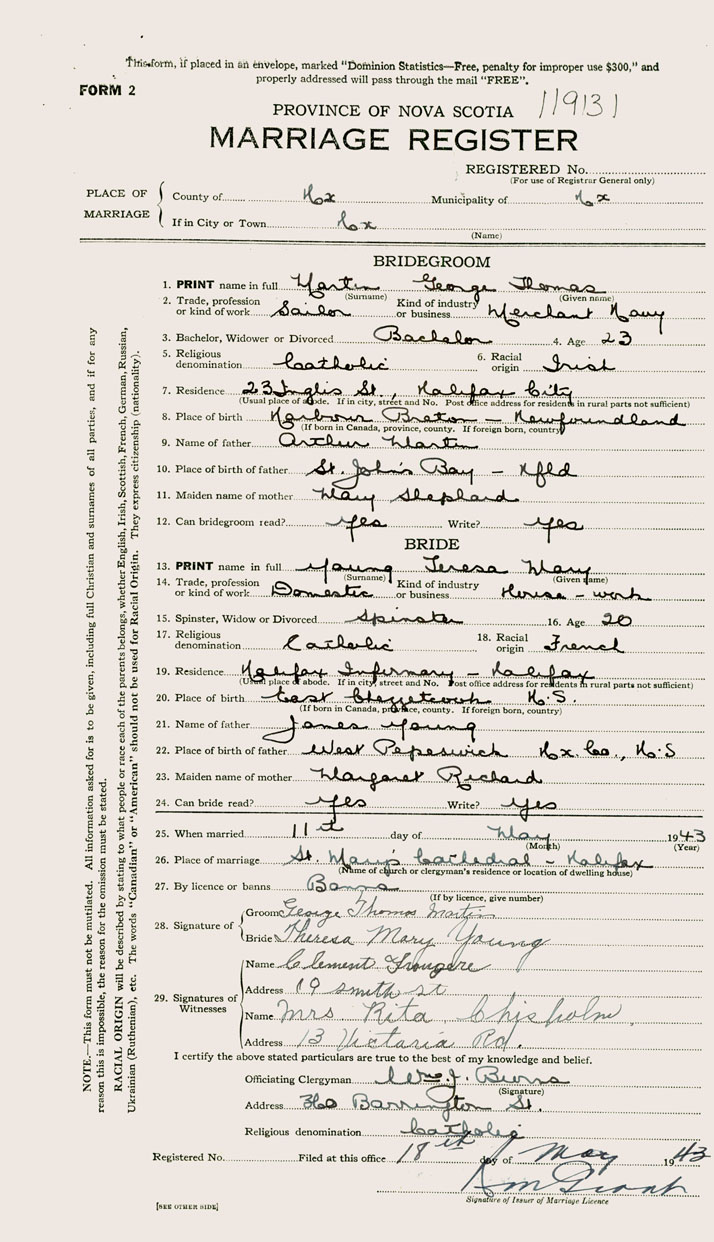 This form, if placed in an envelope, marked "Dominion Statistics—Free, penalty for improper use $300," and
properly addressed will pass through the mail "FREE".
FORM 2
PROVINCE OF NOVA SCOTIA 119131
MARRIAGE REGISTER
REGISTERED No.
(For use of Registrar General only)
PLACE OF MARRIAGE
County of Hx Municipality of Hx
If in City or Town Hx
(Name)
BRIDEGROOM
1. PRINT name in full Martin George Thomas
(Surname) (Given name)
2. Trade, profession or kind of work Sailor Kind of industry or business Merchant Navy
3. Bachelor, Widower or Divorced Bachelor 4. Age 23
5. Religious denomination Catholic 6. Racial origin Irish
7. Residence 23 Inglis St., Halifax City
(Usual place of abode. If in city, street and No. Post office address for residents in rural parts not sufficient)
8. Place of birth Harbour Breton - Newfoundland
(If born in Canada, province, county. If foreign born, country)
9. Name of father Arthur Martin
10. Place of birth of father St. John's Bay - Nfld
11. Maiden name of mother Mary Shephard
12. Can bridegroom read? Yes Write? Yes
BRIDE
13. PRINT name in full Young Teresa Mary
(Surname) (Given name)
14. Trade, profession or kind of work Domestic Kind of industry or business House - work
15. Spinster, Widow or Divorced Spinster 16. Age 20
17. Religious denomination Catholic 18. Racial origin French
19. Residence Halifax Infirmary - Halifax
(Usual place of abode. If in city, street and No. Post office address for residents in rural parts not sufficient)
20. Place of birth East Chezzetcook N.S.
(If born in Canada, province, county. If foreign born, country)
21. Name of father James Young
22. Place of birth of father West Pepeswick Hx. Co., N.S
23. Maiden name of mother Margaret Richard
24. Can bride read? Yes Write? Yes
25. When married 11th day of May 1943
(Month) (Year)
26. Place of marriage St. Mary's Cathedral - Halifax
(Name of church or clergyman's residence or location of dwelling house)
27. By licence or banns Banns
(If by licence, give number)
28. Signature of
Groom George Thomas Martin
Bride Theresa Mary Young
29. Signatures of Witnesses
Name Clement Frougere
Address 19 Smith St
Name Mrs Rita Chisholm.
Address 13 Victoria Rd.
I certify the above stated particulars are true to the best of my knowledge and belief.
Officiating Clergyman Wm. J. Burns
(Signature)
Address Barrington St.
Religious denomination Catholic
Registered No. Filed at this office 18th day of May 1943
Signature of Issuer of Marriage Licence
[SEE OTHER SIDE]
NOTE.—This form must not be mutilated. All information asked for is to be given, including full Christian and surnames of all parties, and if for any
reason this is impossible, the reason for the omission must be stated.
RACIAL ORIGIN will be described by stating to what people or race each of the parents belongs, whether English, Irish, Scottish, French, German, Russian,
Ukrainian (Ruthenian), etc. The words "Canadian" or "American" should not be used for Racial Origin. They express citizenship (nationality).